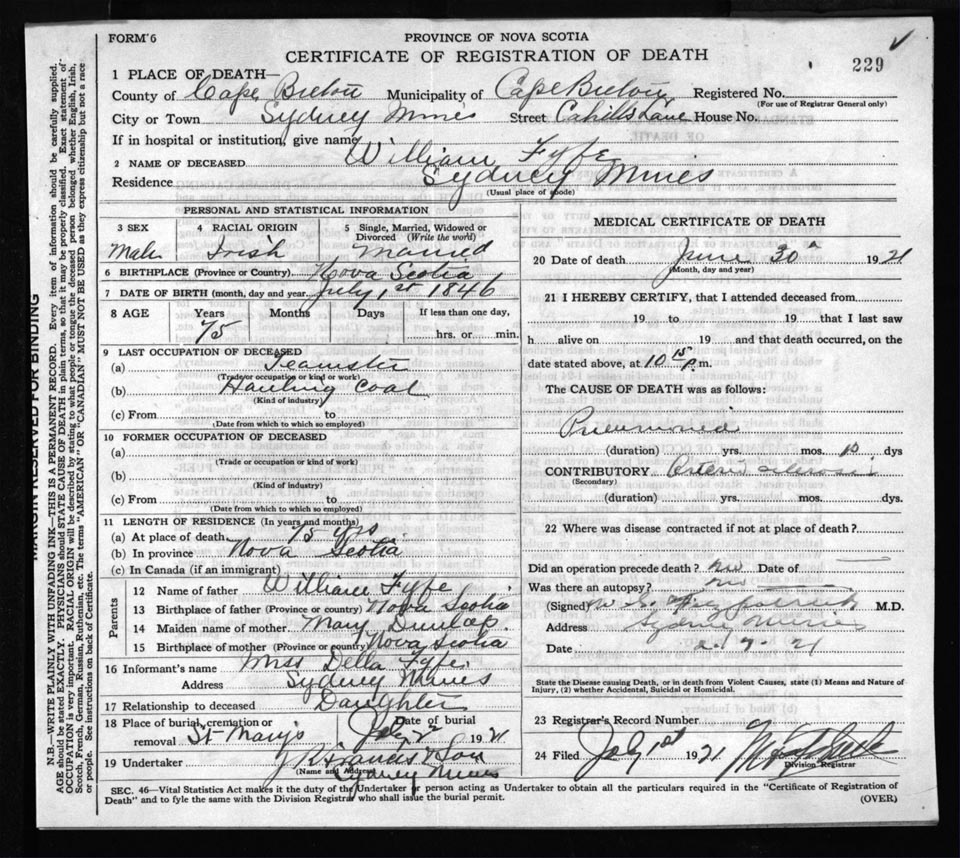 FORM 6
PROVINCE OF NOVA SCOTIA
CERTIFICATE OF REGISTRATION OF DEATH
229
1 PLACE OF DEATH—
County of Cape Breton Municipality of Cape Breton Registered No.
(For use of Registrar General only)
City or Town Sydney Mines Street Cahills Lane House No.
If in hospital or institution, give name
2 NAME OF DECEASED William Fyfe
Residence Sydney Mines
(Usual place of abode)
PERSONAL AND STATISTICAL INFORMATION
3 SEX 4 RACIAL ORIGIN 5 Single, Married, Widowed or Divorced (Write the word)
Male Irish Married
6 BIRTHPLACE (Province or Country) Nova Scotia
7 DATE OF BIRTH (month, day and year) July 1st 1846
8 AGE Years Months Days If less than one day,
75 hrs. or min.
9 LAST OCCUPATION OF DECEASED
(a) Teamster
(Trade or occupation or kind of work)
(b) Hauling Coal
(Kind of industry)
(c) From to
(Date from which to which so employed)
10 FORMER OCCUPATION OF DECEASED
(a)
(Trade or occupation or kind of work)
(b)
(Kind of industry)
(c) From to
(Date from which to which so employed)
11 LENGTH OF RESIDENCE (In years and months)
(a) At place of death 75 yrs.
(b) In province Nova Scotia
(c) In Canada (if an immigrant)
Parents
12 Name of father William Fyfe
13 Birthplace of father (Province or country) Nova Scotia
14 Maiden name of mother Mary Dunlop
15 Birthplace of mother (Province or country) Nova Scotia
16 Informant's name Miss Della Fyfe
Address Sydney Mines
17 Relationship to deceased Daughter
18 Place of burial, cremation or removal St Mary's Date of burial July 2 1921
19 Undertaker & Son
(Name and Address)
Sydney Mines
MEDICAL CERTIFICATE OF DEATH
20 Date of death June 30 1921
(Month, day and year)
21 I HEREBY CERTIFY, that I attended deceased from
19 to 19 that I last saw
h alive on 19 and that death occurred, on the
date stated above, at 10 15 p.m.
The CAUSE OF DEATH was as follows:
Pneumonia
(duration) yrs. mos. 10 dys
CONTRIBUTORY Arterio sclerosis
(Secondary)
(duration) yrs. mos. dys.
22 Where was disease contracted if not at place of death?
Did an operation precede death? no Date of
Was there an autopsy? no
(Signed) M.D.
Address Sydney Mines
Date 2. 7. 21
State the Disease causing Death, or in death from Violent Causes, state (1) Means and Nature of Injury, (2) whether Accidental, Suicidal or Homicidal.
23 Registrar's Record Number
24 Filed July 1st 1921
Division Registrar
SEC. 46—Vital Statistics Act makes it the duty of the Undertaker or person acting as Undertaker to obtain all the particulars required in the "Certificate of Registration of
Death" and to fyle the same with the Division Registrar who shall issue the burial permit.
(OVER)
MARGIN RESERVED FOR BINDING
N.B.—WRITE PLAINLY WITH UNFADING INK—THIS IS A PERMANENT RECORD. Every item of information should be carefully supplied.
AGE should be stated EXACTLY. PHYSICIANS should STATE CAUSE OF DEATH in plain terms, so that it may be properly classified. Exact statement of
OCCUPATION is very important. RACIAL ORIGIN will be described by stating to what people or tongue the deceased person belonged whether English, Irish,
Scotch, French, German, Russian, Ruthenian, etc. The terms "AMERICAN" OR "CANADIAN" MUST NOT BE USED as they express citizenship but not a race
or people. See instructions on back of Certificate.